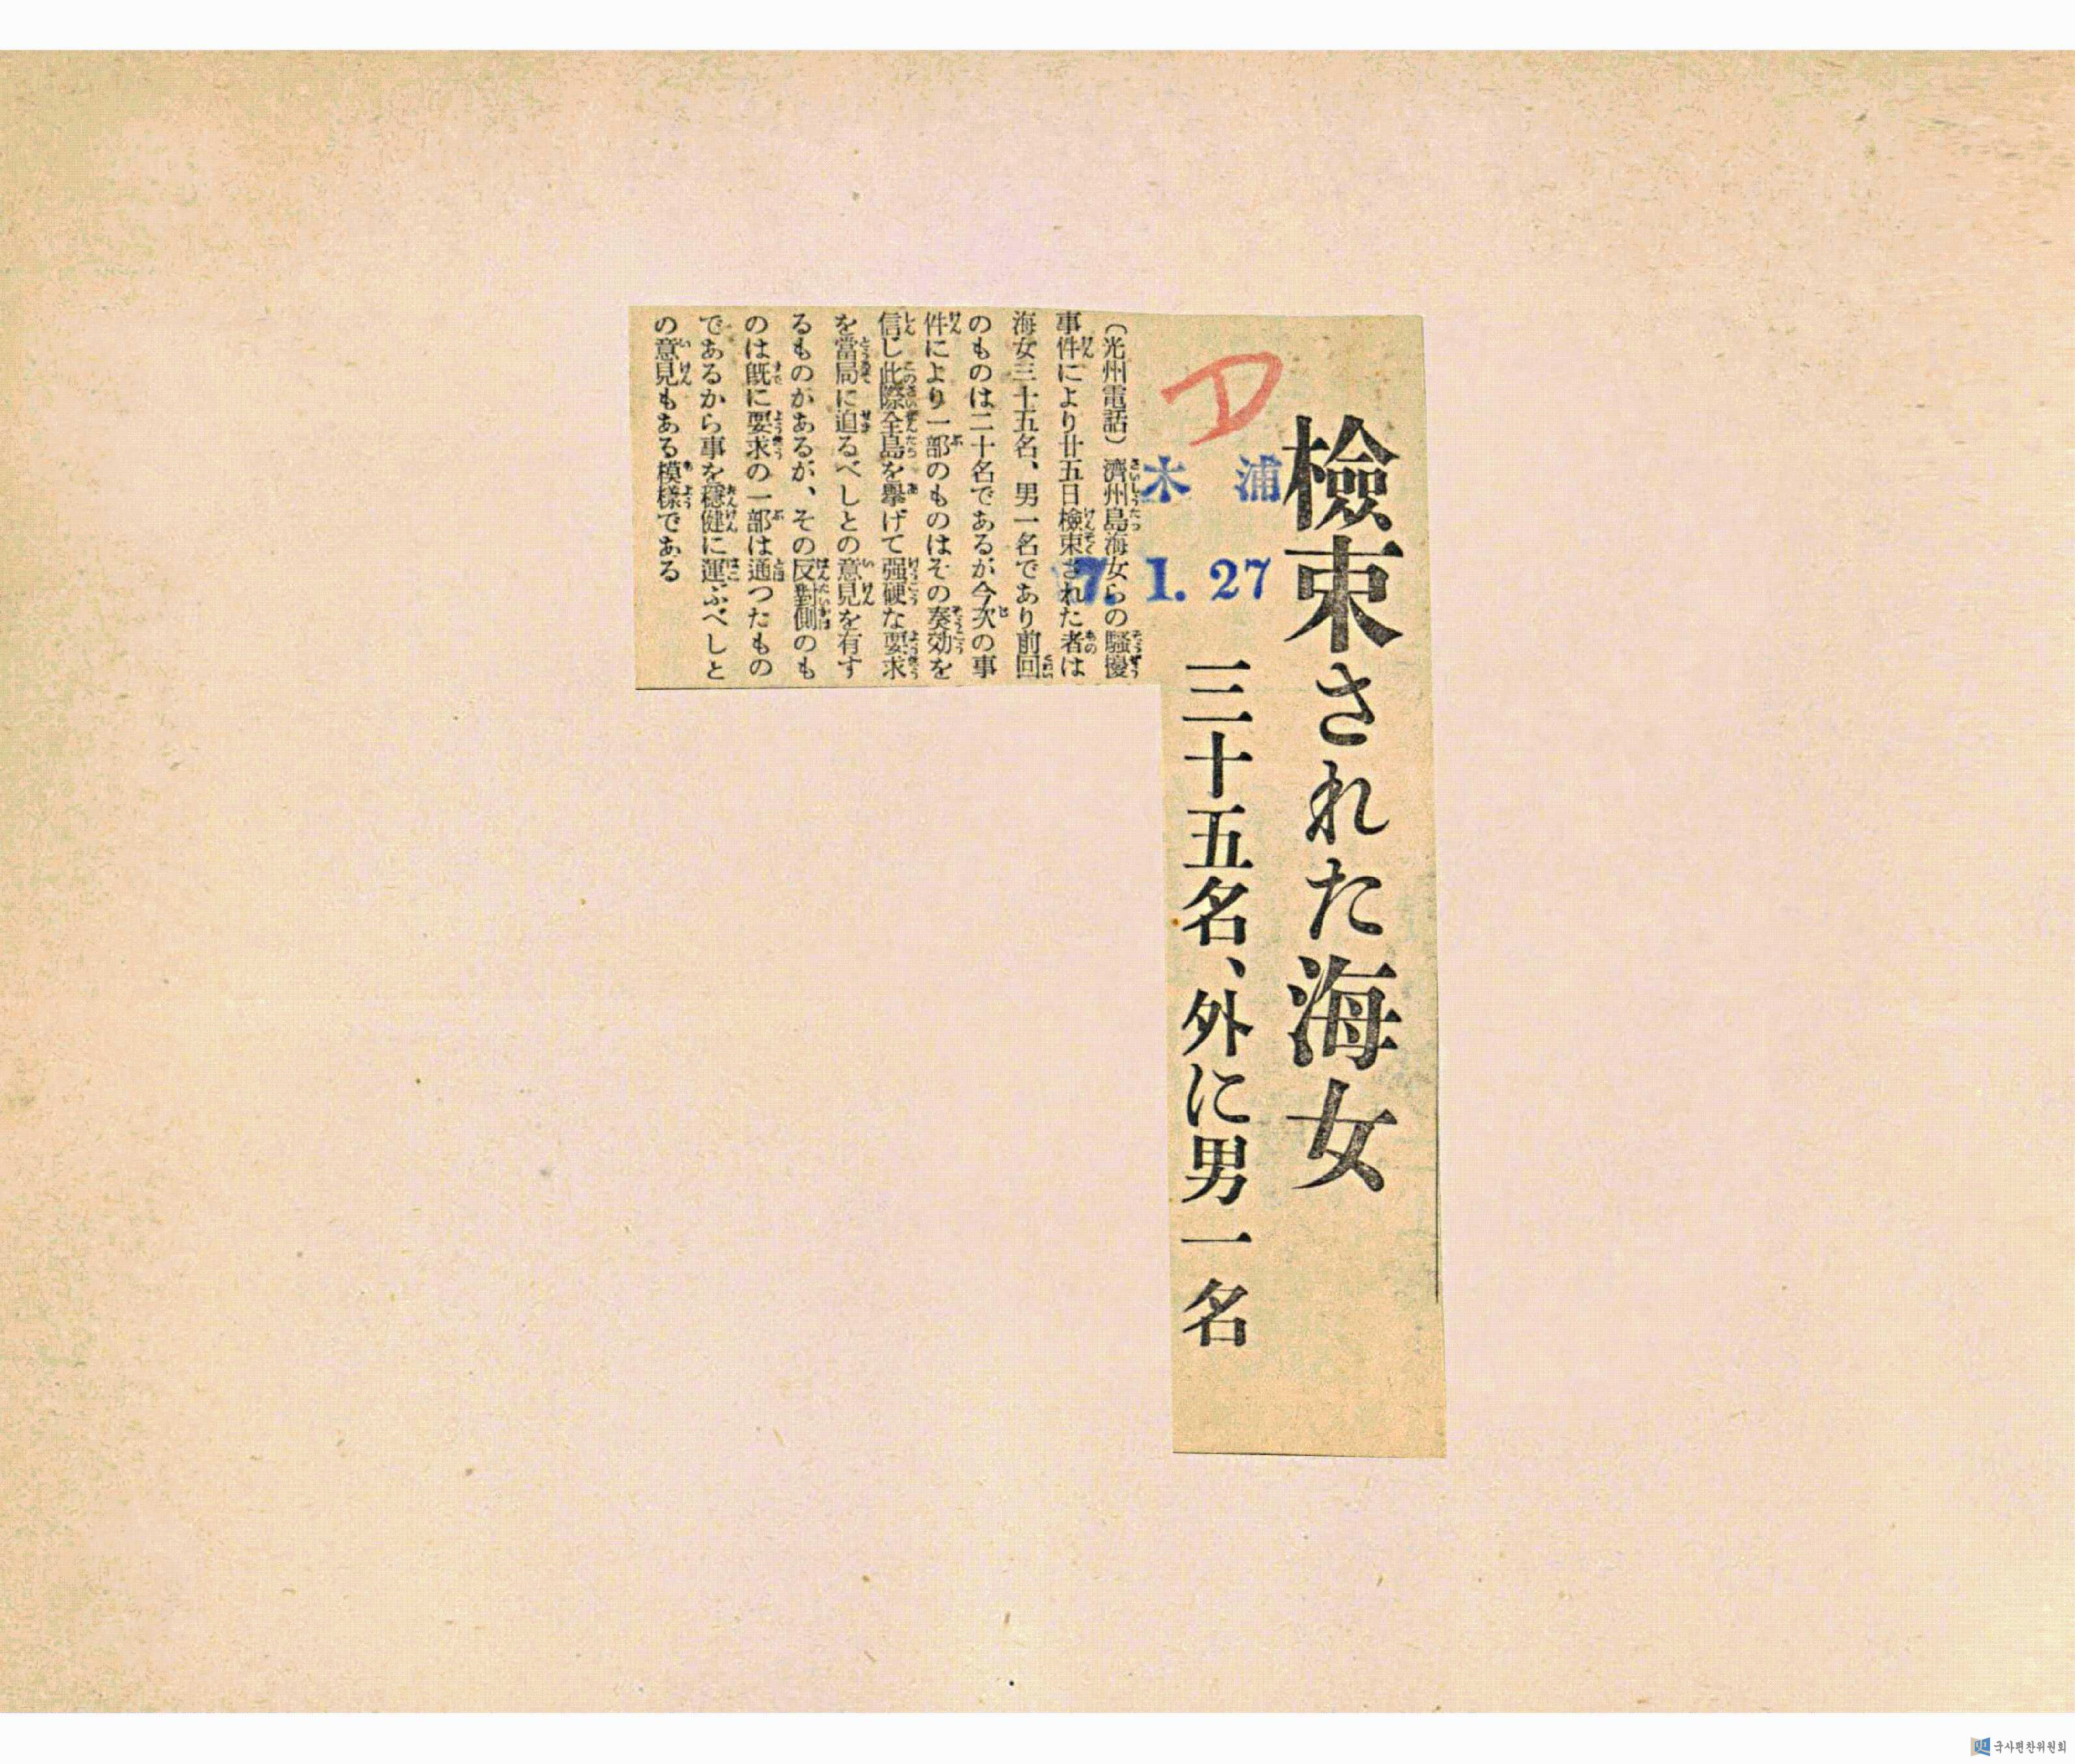 檢束された海女
三十五名、外に男一名
木浦
7. 1. 27
(光州電話)濟州島海女らの騷擾
事件により廿五日檢束された者は
海女三十五名、男一名であり前回
のものは二十名であるが今次の事
件により一部のものはその奏効を
信じ此際全島を擧げて强硬な要求
を當局に迫るべしとの意見を有す
るものがあるが、その反對側のも
のは既に要求の一部は通つたもの
であるから事を穩健に運ぶべしと
の意見もある模樣である
국사편찬위원회